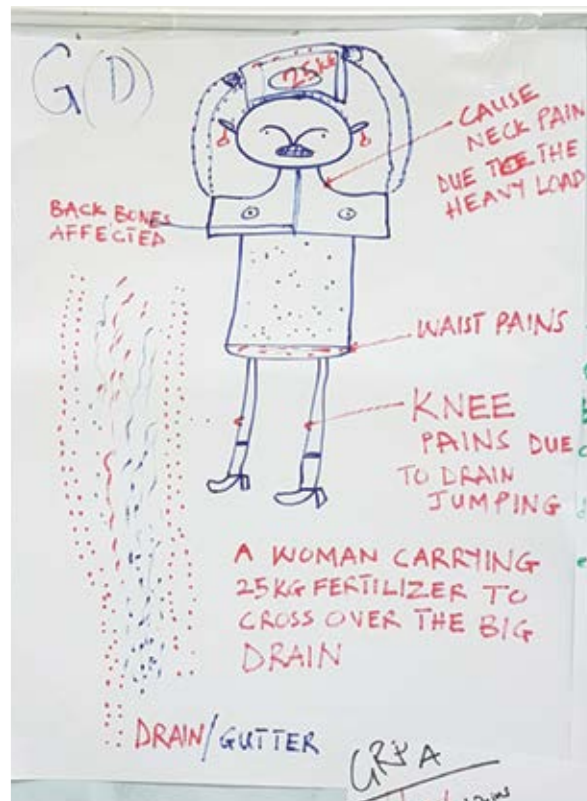 G(D)
25kg
CAUSE
NECK PAIN
DUE TO THE
HEAVY LOAD
BACK BONES
AFFECTED
WAIST PAINS
KNEE
PAINS DUE
TO DRAIN
JUMPING
A WOMAN CARRYING
25KG FERTILIZER TO
CROSS OVER THE BIG
DRAIN
DRAIN/GUTTER
GRP A